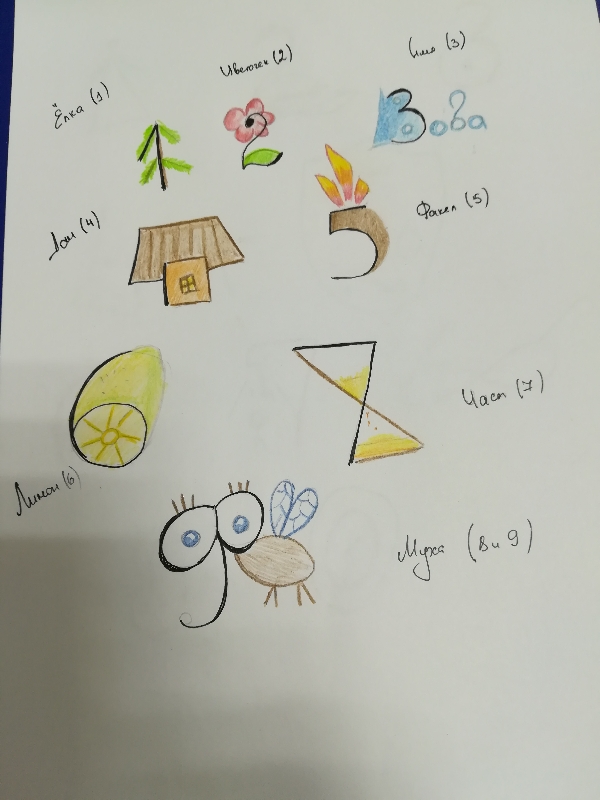 Ёлка (1)
Цветочек (2)
Имя (3)
Вова
Дом (4)
Факел (5)
Лимон (6)
Часы (7)
Муха (8 и 9)